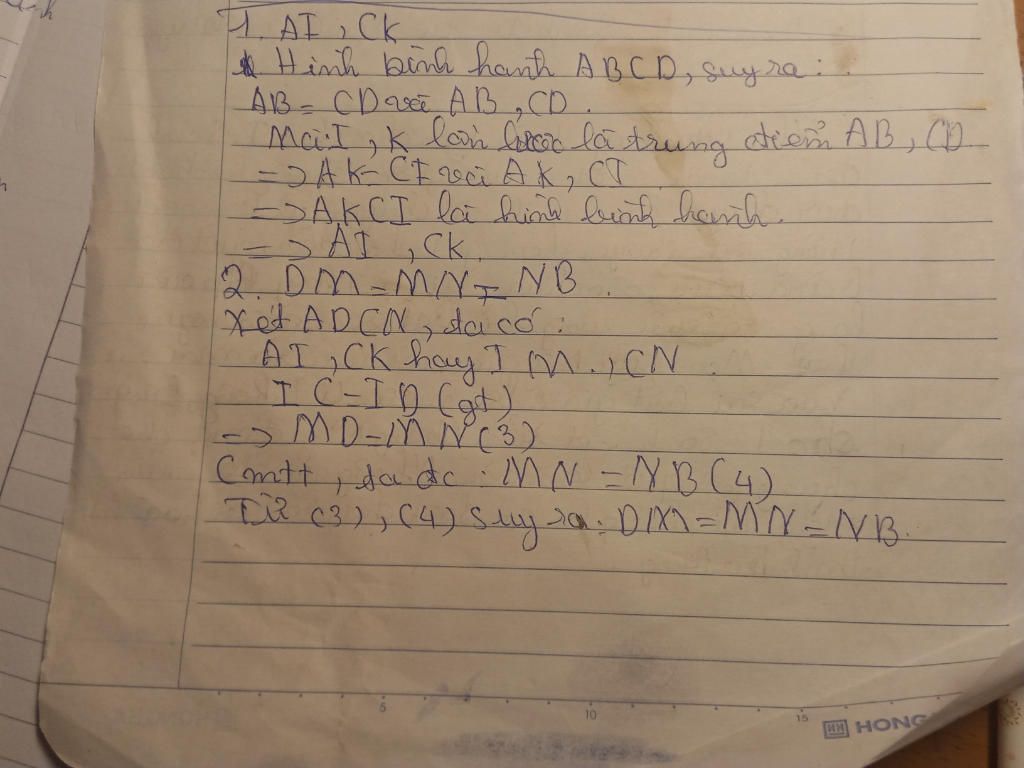 1. AI, CK
Hình bình hành ABCD, suy ra:
AB = CD và AB, CD.
Mà: I, K lần lượt là trung điểm AB, CD
=> AK = CI và AK, CI
=> AKCI là hình bình hành.
=> AI, CK.
2. DM = MN = NB.
Xét ADCN, ta có:
AI, CK hay IM., CN.
IC = ID (gt)
=> MD = MN (3)
Cmtt, ta đc: MN = NB (4)
Từ (3), (4) suy ra: DM = MN = NB.
5 10 15
HONG